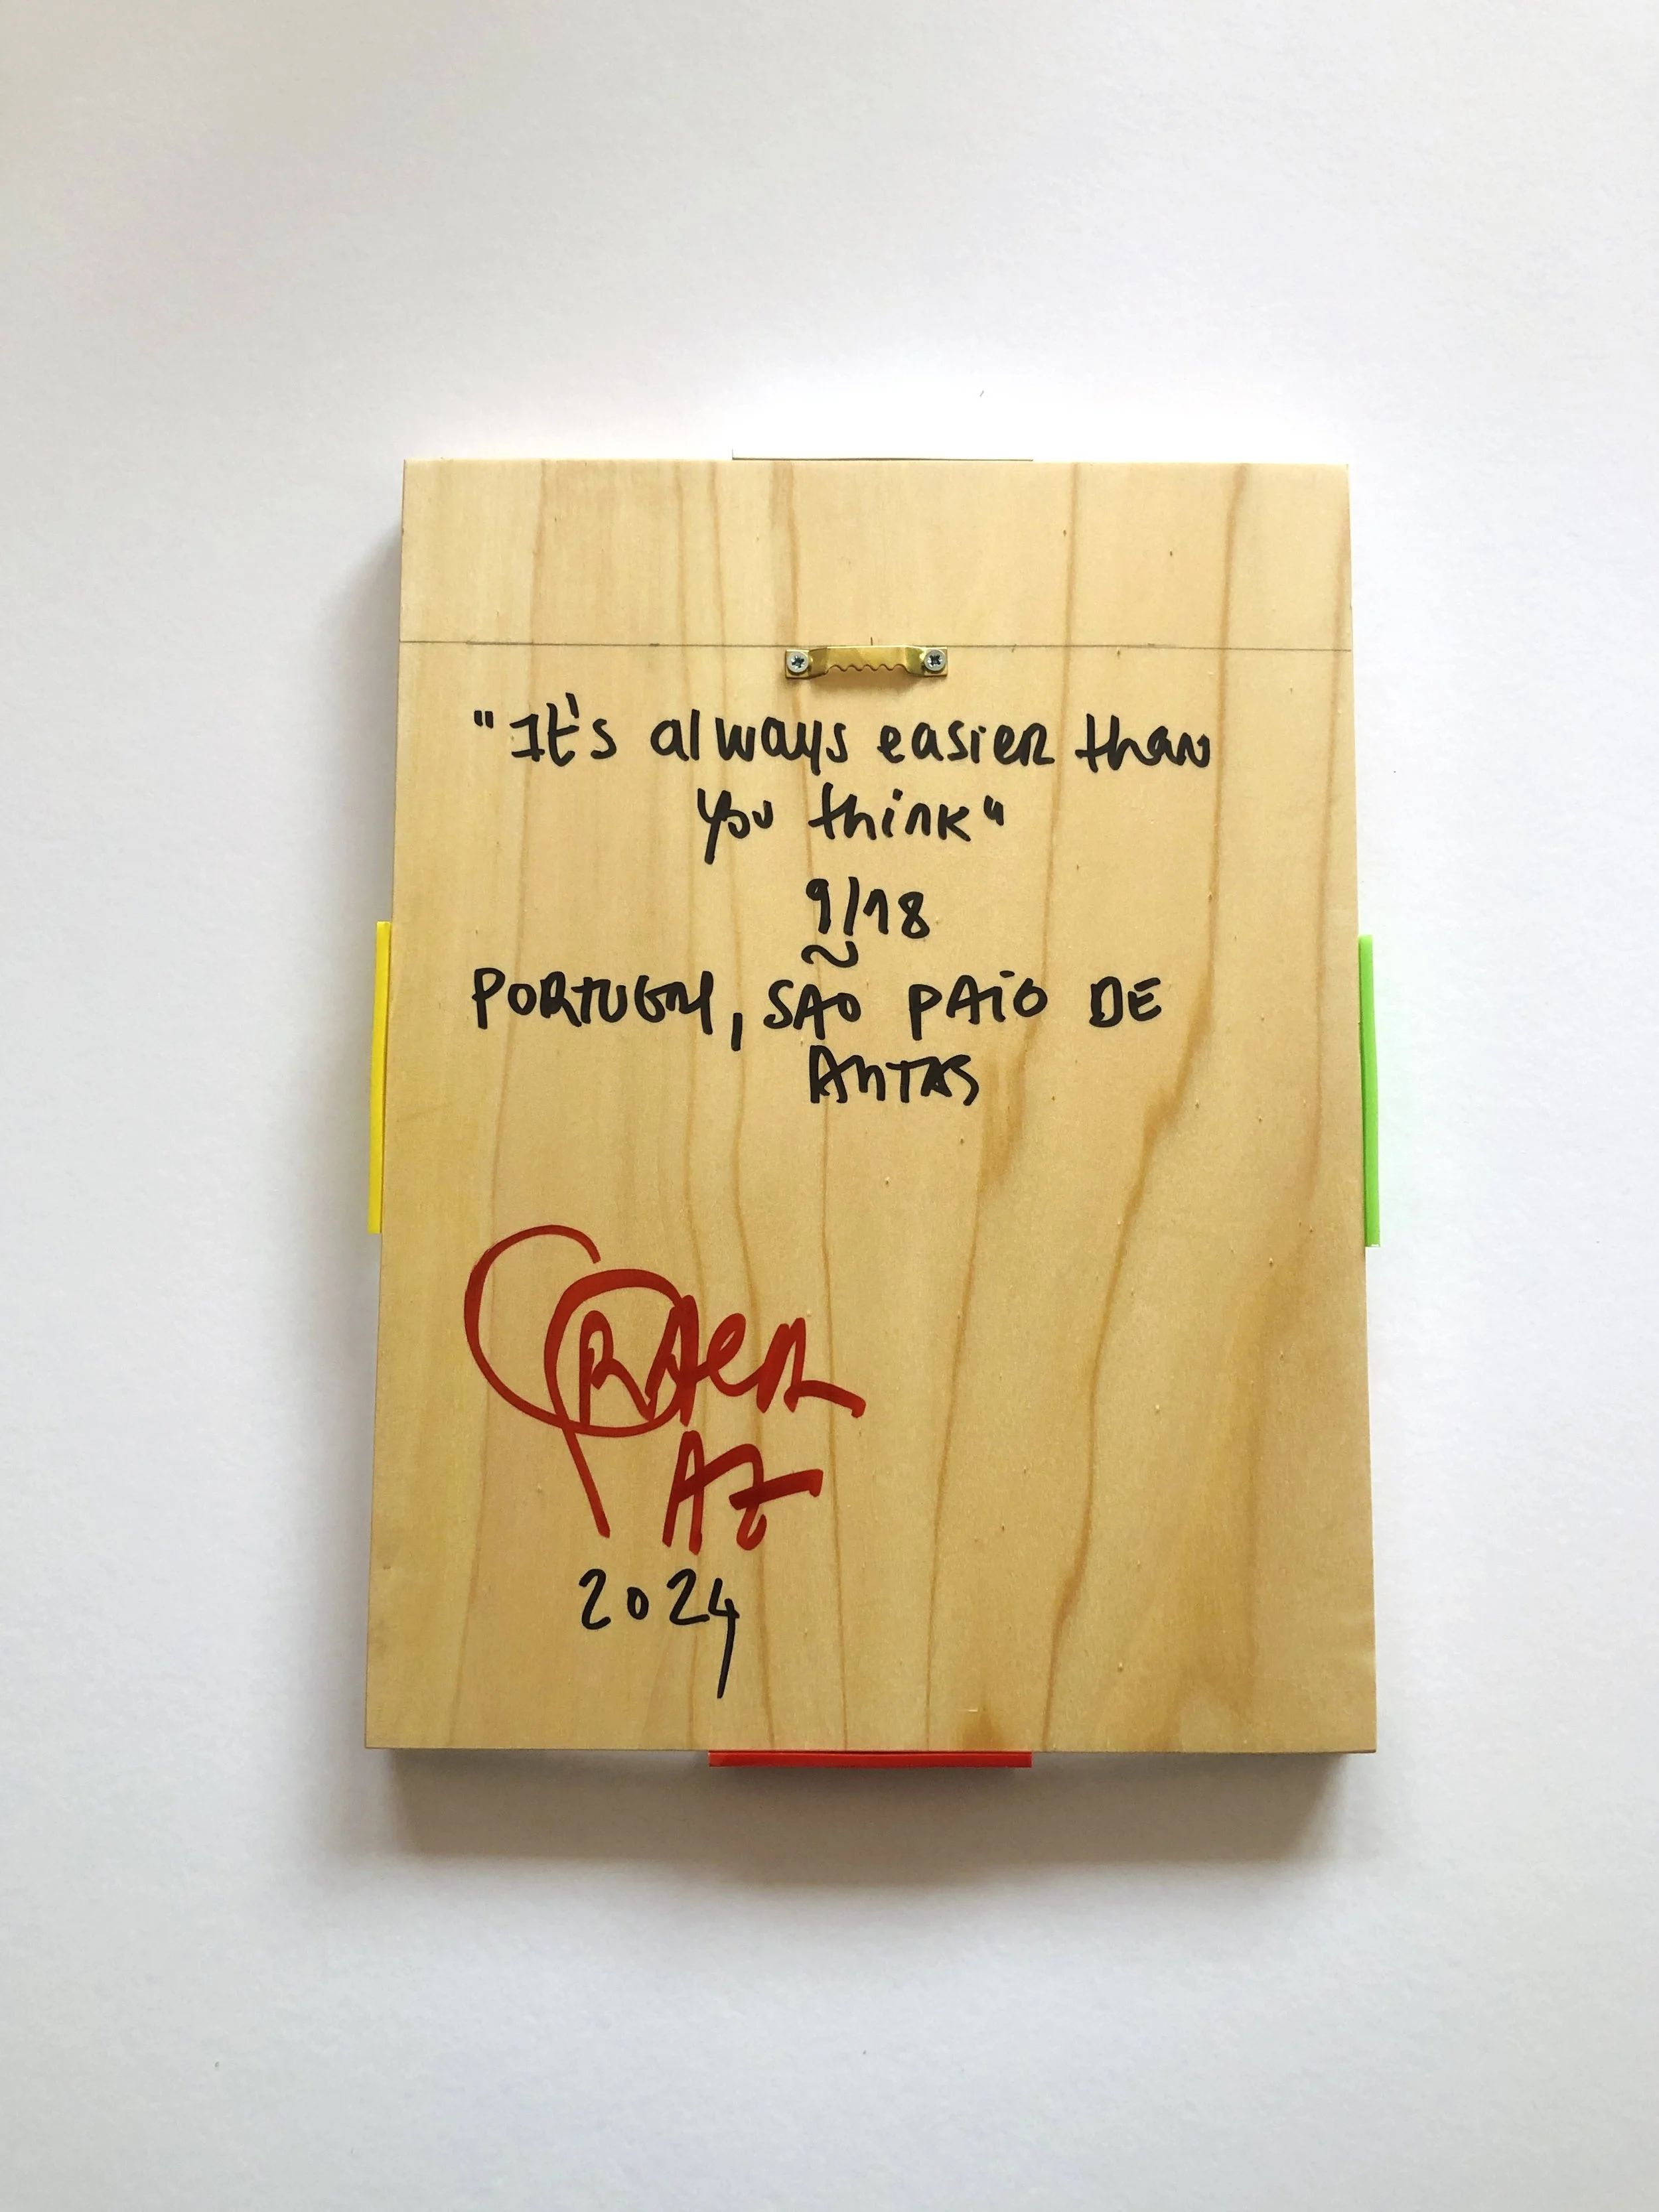 "It's always easier than
you think"
9/18
PORTUGAL, SÃO PAIO DE
ANTAS
AZ
2024